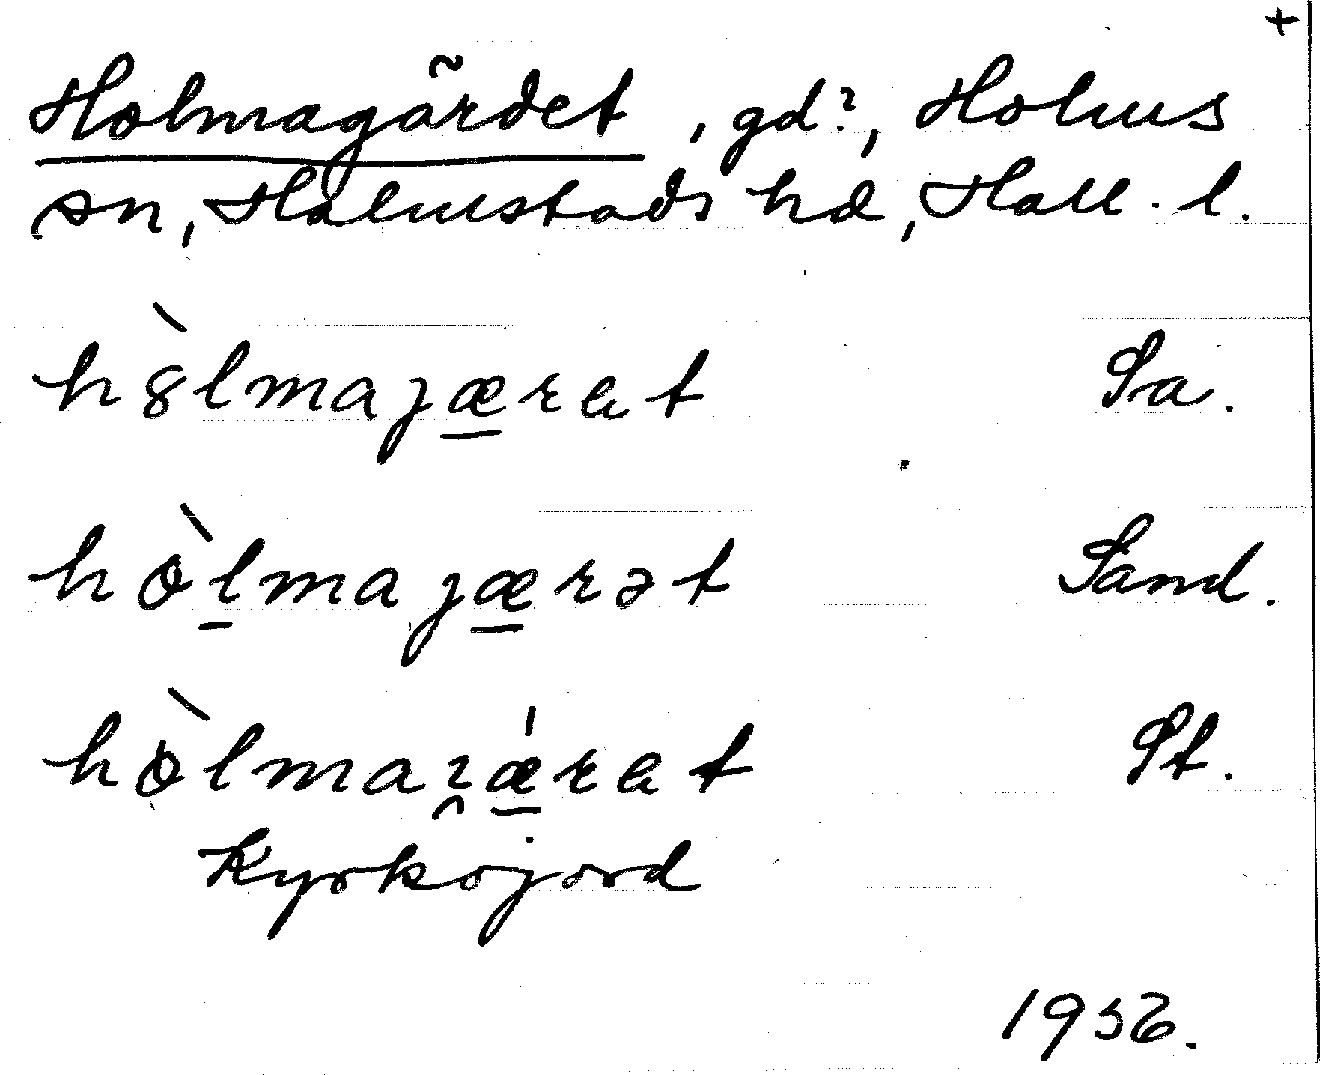 +
Holmagärdet, gd?, Holms
sn, Halmstads hd, Hall. l.
hò̀lmajæ̲rat Sa.
hòl̲majæ̲rət Sand.
hòlmaɪǽ̲rat St.
Kyrkojord
1956.